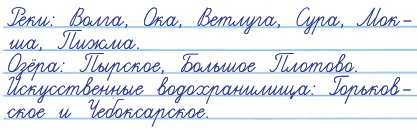 Реки: Волга, Ока, Ветлуга, Сура, Мок-
ша, Пижма.
Озёра: Пырское, Большое Плотово.
Искусственные водохранилища: Горьков-
ское и Чебоксарское.